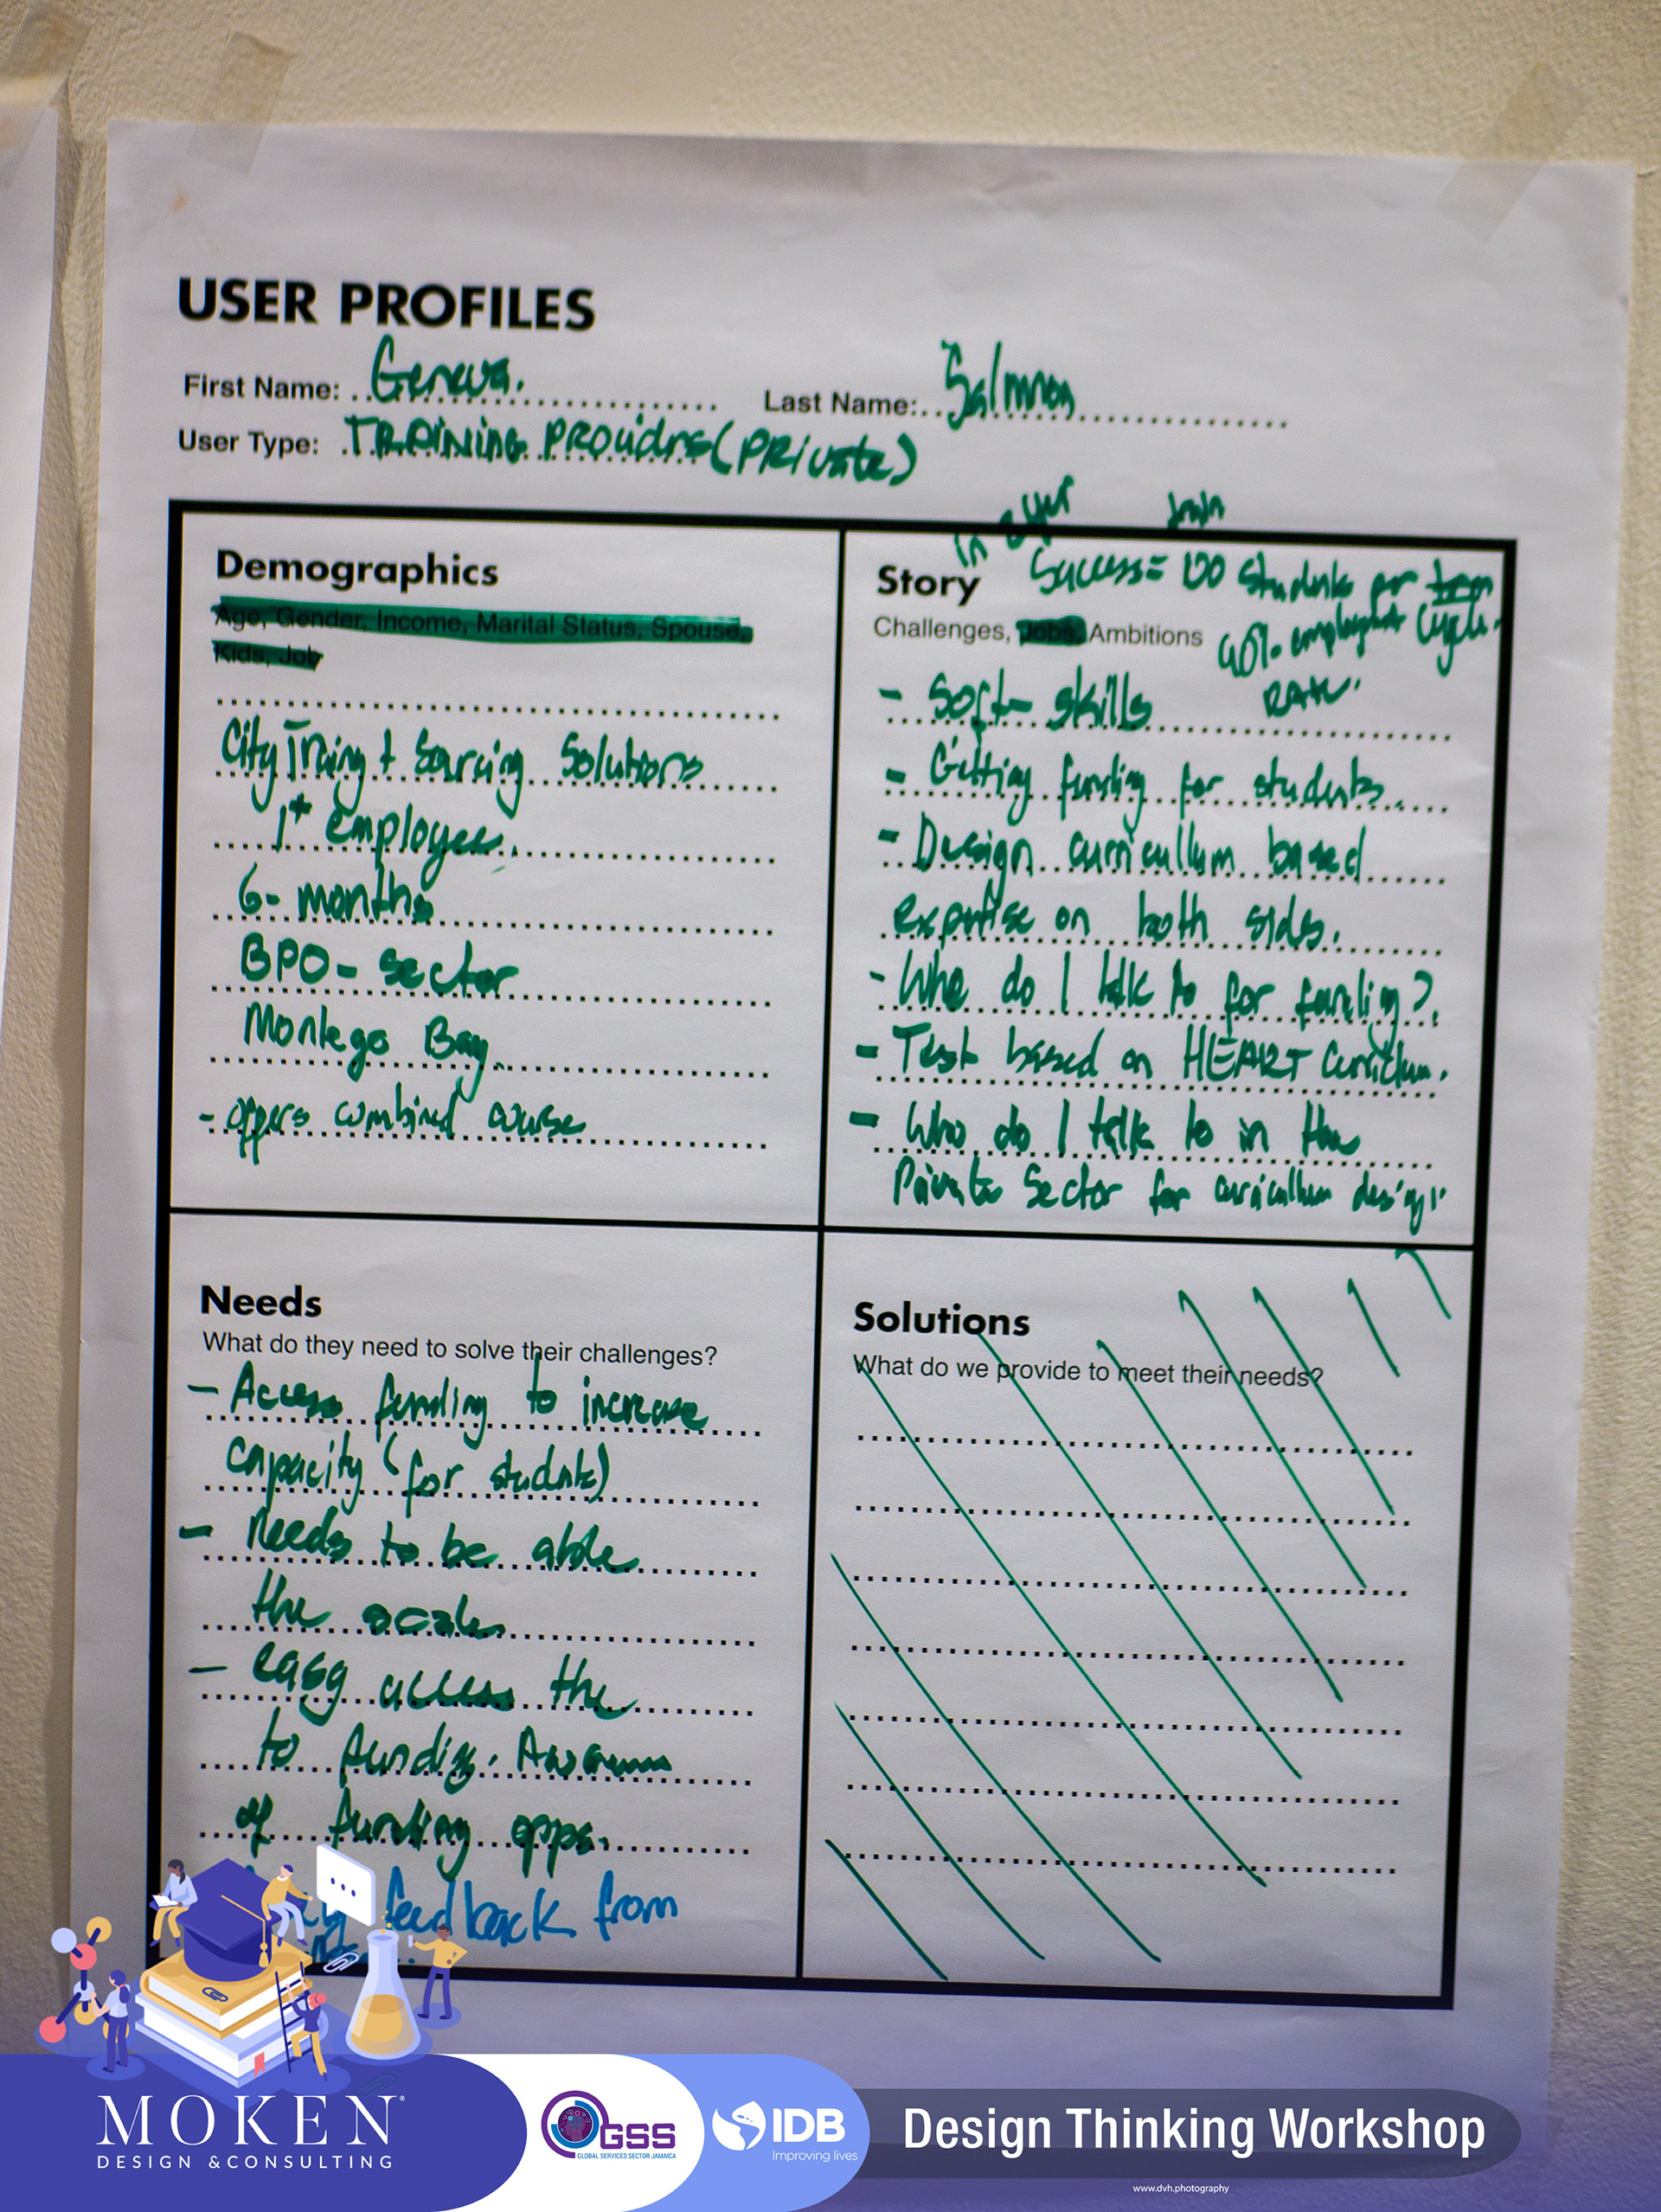 USER PROFILES
First Name: Geneva. Last Name: Salmon
User Type: TRAINING PROVIDRS (PRIVATE)
Demographics
Age, Gender, Income, Marital Status, Spouse,
Kids, Job
City Traing + Sourcing Solutions
1st employee.
6- months
BPO- sector
Montego Bay.
- offers combined course
in a year
Story
Success = 100 students per term
Challenges, Jobs, Ambitions
employment Cycle.
RATE.
- Soft- skills
- Getting funding for students.
- Design curricullum based
expertise on both sides.
- Who do I talk to for funding?
- Test based on HEART Curriclum.
- Who do I talk to in the
Private Sector for curricullum design
Needs
What do they need to solve their challenges?
- Access funding to increase
capacity (for students)
- Needs to be able
the scale
- easy access the
to funding. Awareness
of funding opps.
feedback from
Solutions
What do we provide to meet their needs?
MOKEN
DESIGN & CONSULTING
GSS
GLOBAL SERVICES SECTOR JAMAICA
IDB
Improving lives
Design Thinking Workshop
www.dvh.photography